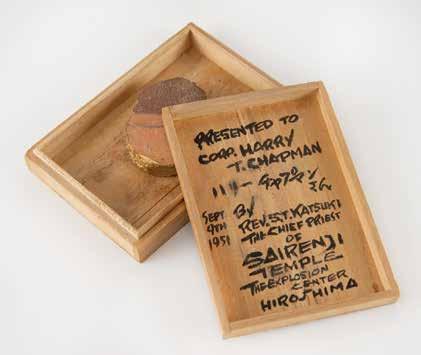 PRESENTED TO
CORP. HARRY
T. CHAPMAN
ハリー チャプマン
さん
SEPT
9TH
1951
By
REV. S.T. KATSUKI
THE CHIEF PRIEST
OF
SAIRENJI
TEMPLE
THE EXPLOSION
CENTER
HIROSHIMA